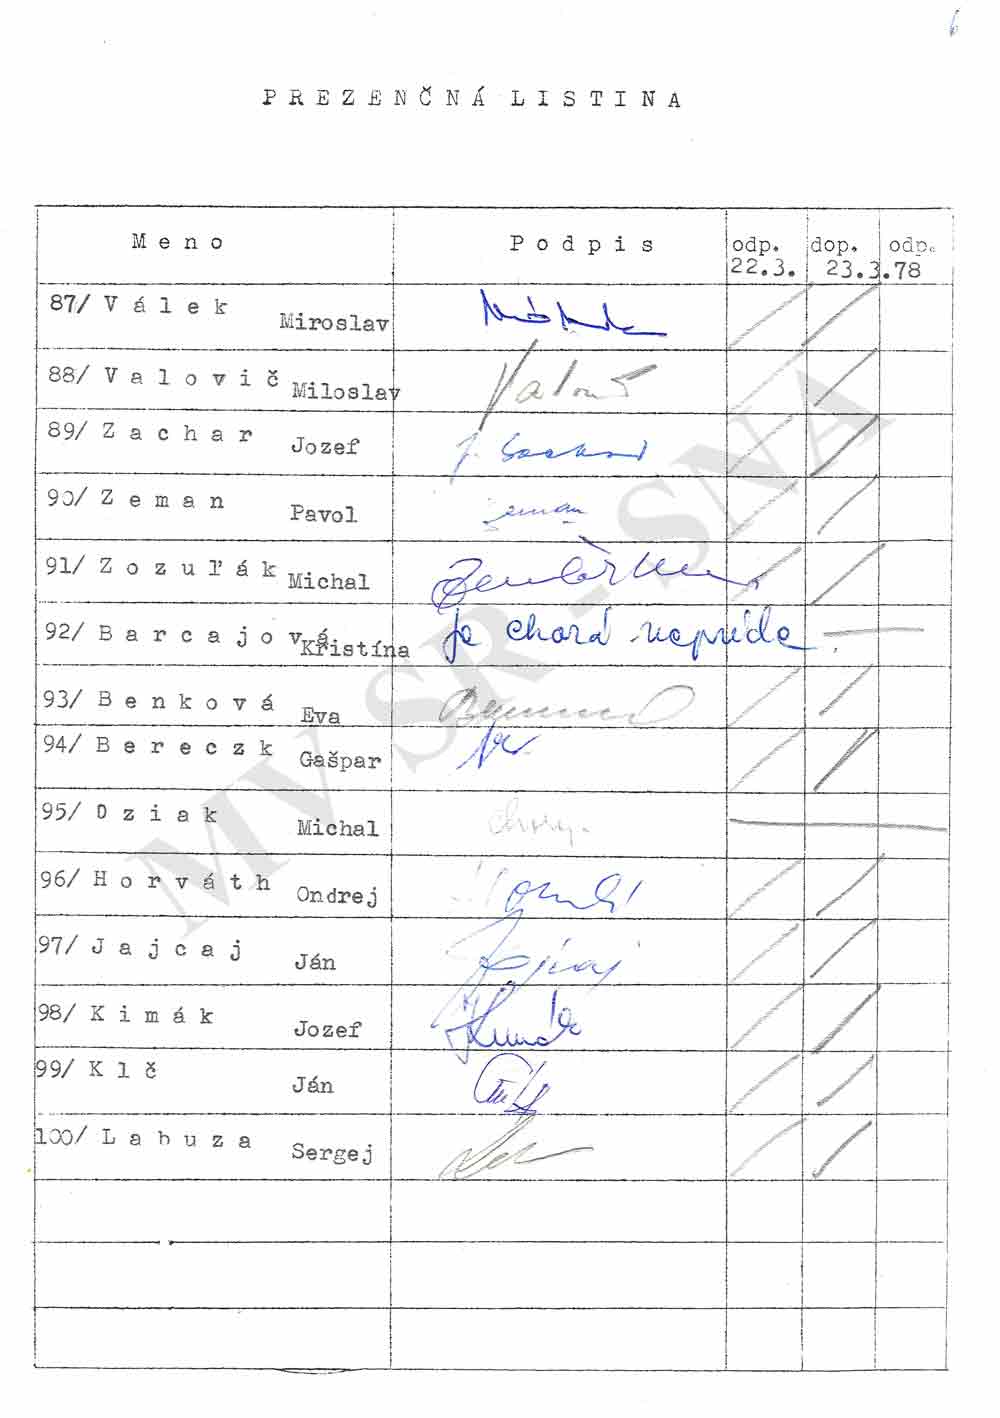 6
PREZENČNÁ LISTINA
Meno Podpis odp. dop. odp.
22.3. 23.3.78
87/ Válek Miroslav
88/ Valovič Miloslav
89/ Zachar Jozef
90/ Zeman Pavol Zeman
91/ Zozuľák Michal
92/ Barcajová Kristína je chorá nepríde
93/ Benková Eva
94/ Bereczk Gašpar
95/ Dziak Michal chorý
96/ Horváth Ondrej
97/ Jajcaj Ján Jajcaj
98/ Kimák Jozef Kimák
99/ Klč Ján
100/ Labuza Sergej
MV SR - SNA